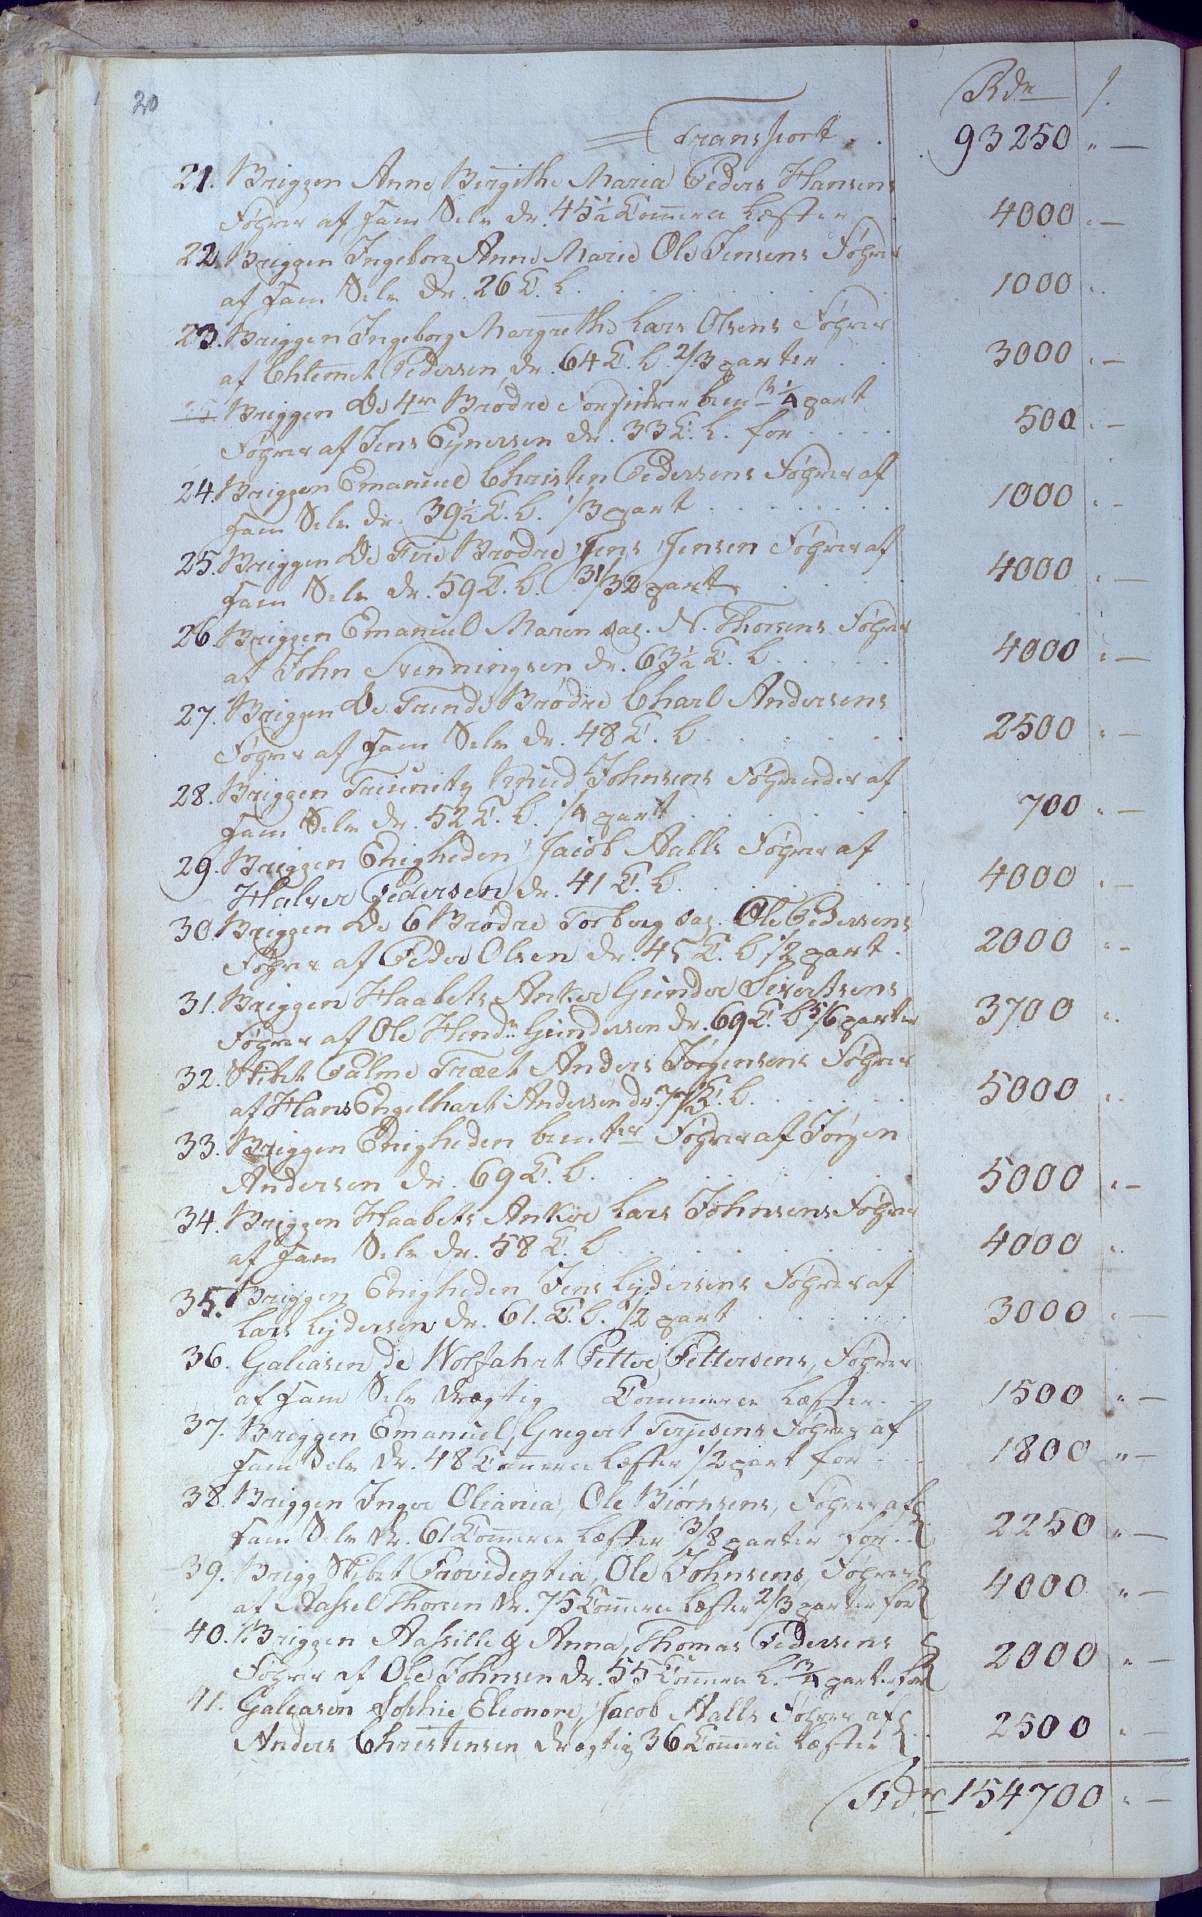 20
Rdr s.
Transport . . 93250 " —
21. Briggen Anne Birgithe Maria Peders Hansens
Føgrer af ham Selv dr. 45½ Commerce Læster . 4000 " —
22. Briggen Ingeborg Anne Marie Ole Jensens Føgrer
af ham Selv dr. 26 C. L. . . . . . 1000 "
23. Briggen Ingeborg Margrethe Lars Olsens Føgrer
af Chlemet Pedersen dr. 64 C. L. 2/3 parter . 3000 " —
Briggen De 4re Brødre ¼ part
Føgrer af Jens Eynersen dr. 33 C. L. for . . . . 500 " —
24. Briggen Emanuel Christen Pedersens Føgrer af
ham Selv dr. 39½ C. L. 1/3 part . . . . . . 1000 " —
25. Briggen De Fire Brødre Jens Jensen Føgrer af
ham Selv dr. 59 C. L. 31/32 part . . . 4000 " —
26. Briggen Emanuel Maren sal. N. Thorsens Føgrer
af John Svenningsen dr. 63½ C. L. . . . . . 4000 " —
27. Briggen De Trende Brødre Charl Andersens
Føgrer af ham Selv dr. 48 C. L. . . . . . 2500 " —
28. Briggen Triunity Knud Johnsens Føgrendes af
ham Selv dr. 52 C. L. ¼ part . . . . . 700 " —
29. Briggen Enigheden, Jacob Aalls Føgrer af
Halver Pedersen dr. 41 C. L. . . . . . 4000 " —
30. Briggen De 6 Brødre Torborg sal. Ole Pedersens
Føgrer af Peder Olsen dr. 45 C. L. ½ part . 2000 " —
31. Briggen Haabets Anker Gunder Sivertsens
Føgrer af Ole Hendr. Gundersen dr. 69 C. L. 5/6 parter 3700 "
32. Skibet Palme Træet Anders Jørgensens Føgrer
af Hans Engelhart Andersen dr. 77½ C. L. . . . . 5000 "
33. Briggen Enigheden Føgrer af Jørgen
Andersen dr. 69 C. L. . . . . . 5000 " —
34. Briggen Haabets Anker Lars Johnsens Føgrer
af ham Selv dr. 58 C. L. . . . . . 4000 "
35. Briggen Enigheden Jens Lydersens Føgrer af
Lars Lydersen dr. 61. C. L. ½ part . . . . . 3000 " —
36. Galeasen de Wolfahrt Petter Pettersens, Føgrer
af ham Selv drægtig Commerce Læster . . 1500 " —
37. Briggen Emanuel, Gregert Terjesens Føgrer af
ham Selv dr. 48 Commerce Læster ½ part for . . . 1800 " —
38. Briggen Inger Oliania, Ole Biørnsens, Føgrer af
ham Selv dr. 61 Commerce Læster 3/8 parter for . . 2250 " —
39. Brigg Skibet Providentia, Ole Johnsens, Føgrer
af Thorsen dr. 75 Commerce Læster 2/3 parter for 4000 " —
40. Briggen Aasille & Anna, Thomas Pedersens
Føgrer af Ole Johnsen dr. 55 Commerce L. ¾ parter for 2000 " —
41. Galeasen Sophie Eleonore, Jacob Aalls Føgrer af
Anders Christensen drægtig 36 Commerce Læster . . 2500 " —
Rdr 154700 " —